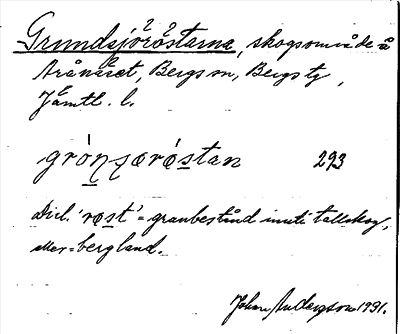 Grundsjöröstarna, skogsområde å
Aranäset, Bergs sn, Bergs tg,
Jämtl. l.
grónsœróstan 293
Dial. 'røst' = granbestånd inuti tallskog,
eller = bergland.
Johan Andersson 1931.